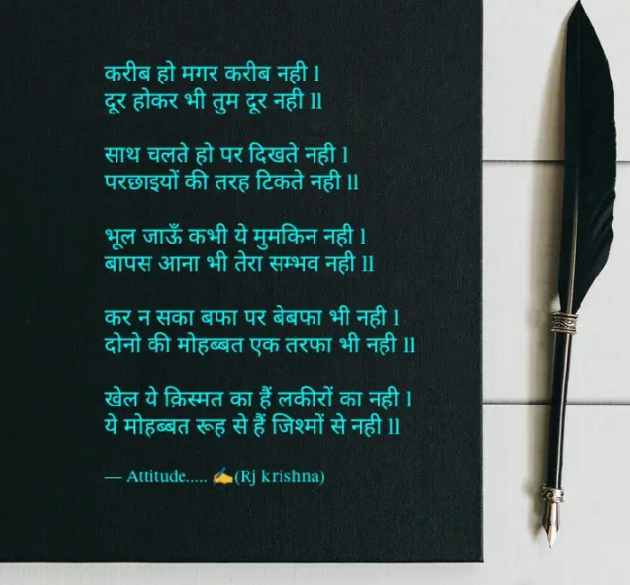 करीब हो मगर करीब नही l
दूर होकर भी तुम दूर नही ll
साथ चलते हो पर दिखते नही l
परछाइयों की तरह टिकते नही ll
भूल जाऊँ कभी ये मुमकिन नही l
बापस आना भी तेरा सम्भव नही ll
कर न सका बफा पर बेबफा भी नही l
दोनो की मोहब्बत एक तरफा भी नही ll
खेल ये क़िस्मत का हैं लकीरों का नही l
ये मोहब्बत रूह से हैं जिश्मों से नही ll
— Attitude..... ✍️(Rj krishna)